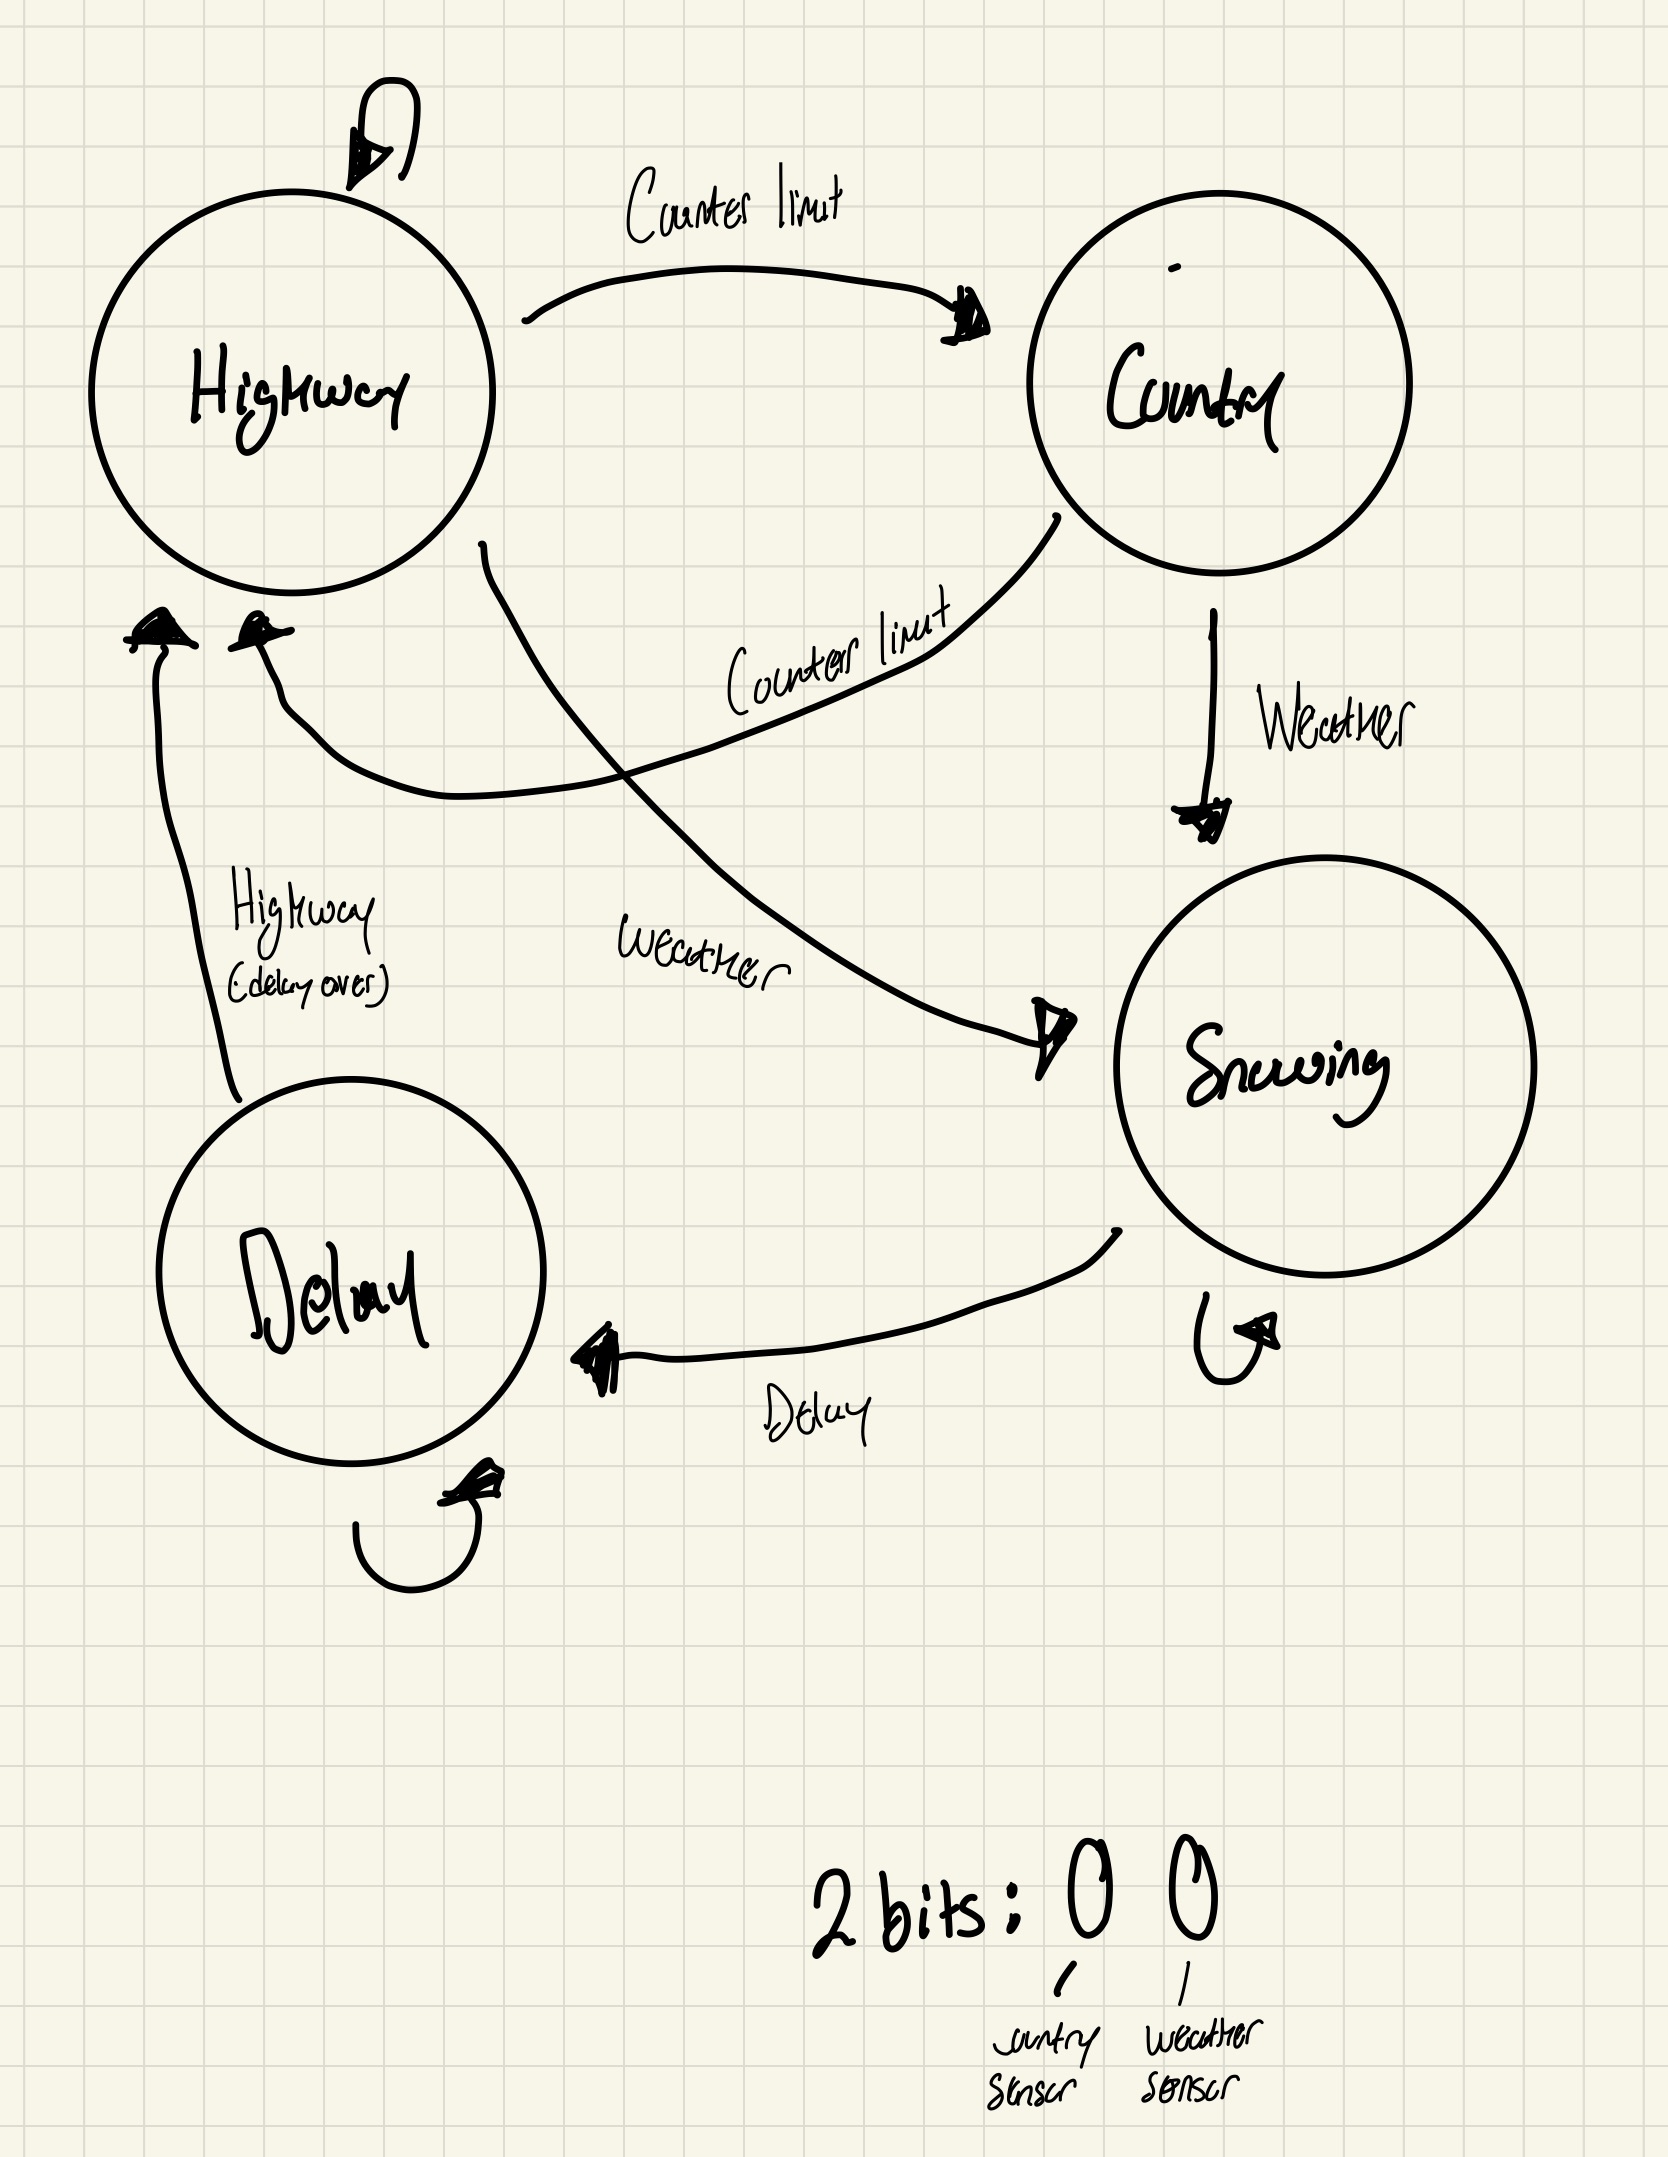 Counter limit
Highway
Country
Counter limit
Weather
Highway
(delay over)
Weather
Snowing
Delay
Delay
2 bits: 0 0
Country
Sensor
Weather
Sensor